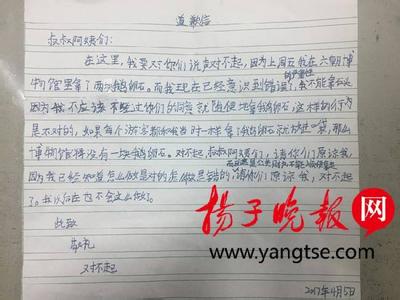 道歉信
叔叔阿姨们：
在这里，我要对你们说声对不起，因为上周五我在六朝博
物馆里拿了两块鹅卵石。而我现在已经意识到错误了，我不能拿石头
的严重性
因为我不应该不经过你们的同意就随便地拿鹅卵石，这样的行为
是不对的，如果每个游客都和我当时一样拿了鹅卵石就放进口袋，那么
博物馆将没有一块鹅卵石。对不起，叔叔阿姨们，请你们原谅我，
因为我已经知道怎么做是对的怎么做是错的，请你们原谅我，对不起
了。我以后再也不会这么做了。
此致
敬礼
对不起
2017年4月5日
扬子晚报网
www.yangtse.com